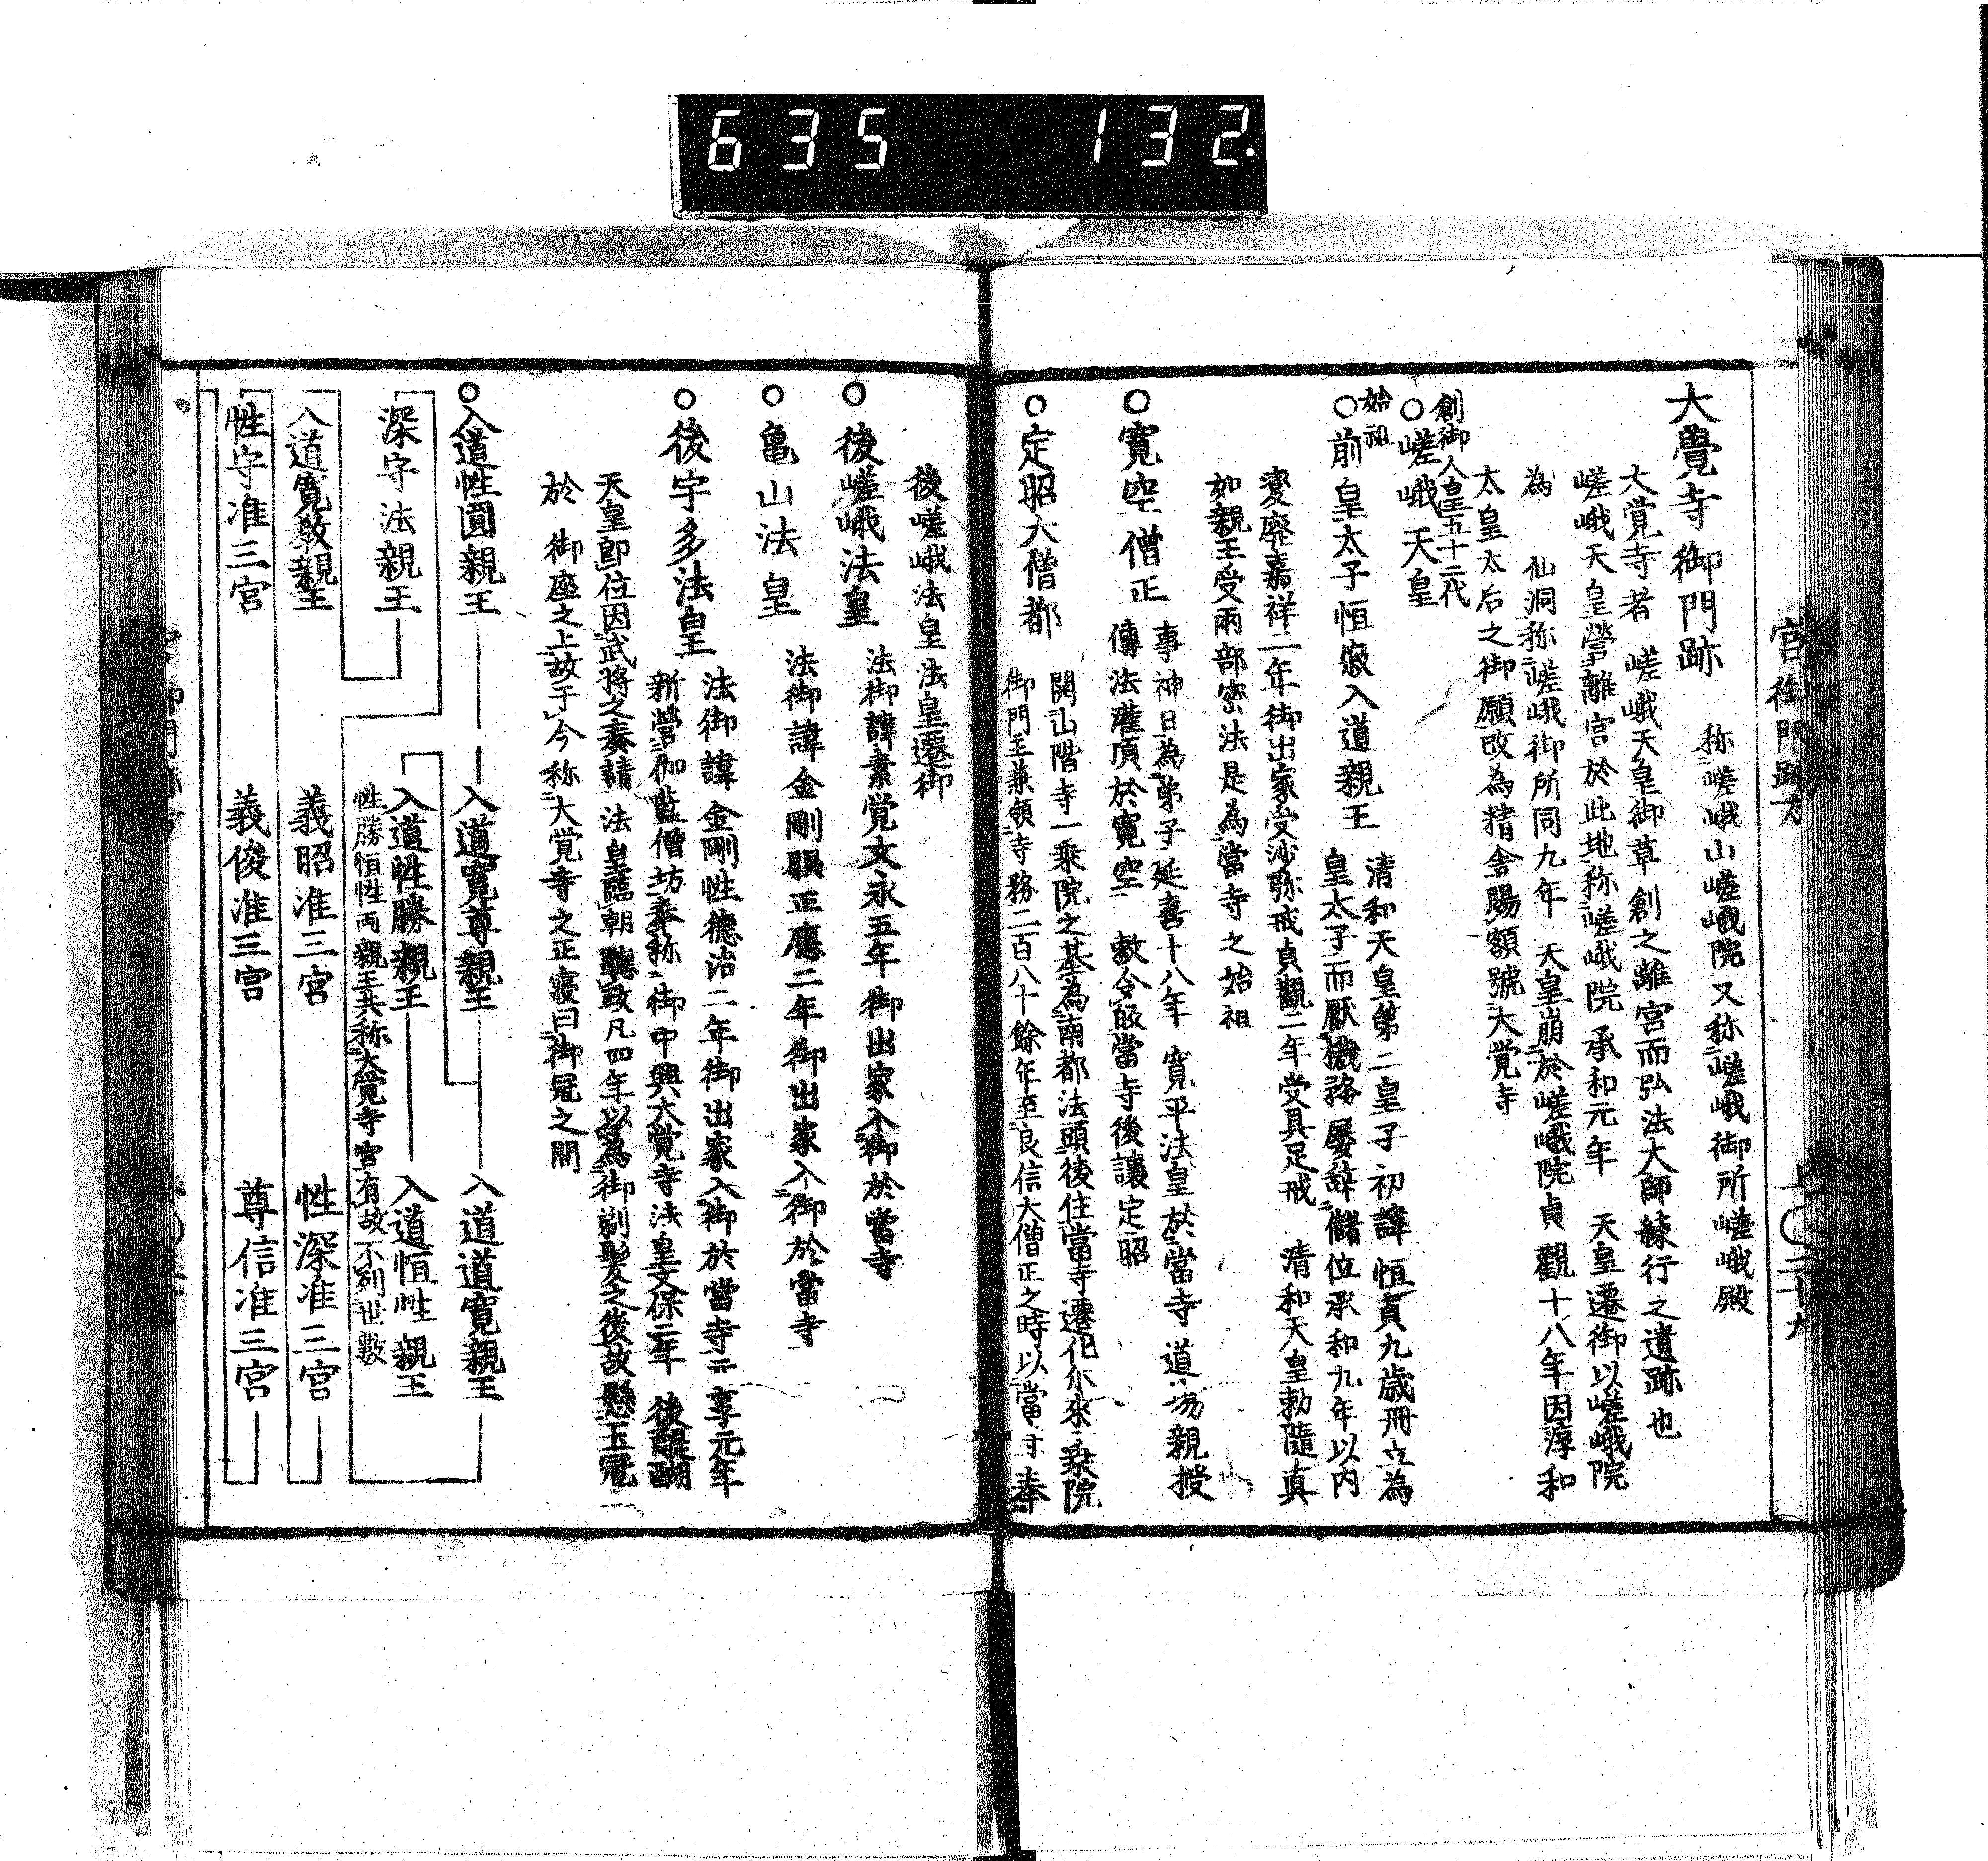 635 132.
宮御門跡
大覺寺御門跡 称嵯峨山嵯峨院又称嵯峨御所嵯峨殿
大覚寺者 嵯峨天皇御草創之離宮而弘法大師練行之遺跡也
嵯峨天皇營離宮於此地称嵯峨院承和元年 天皇遷御以嵯峨院
為 仙洞称嵯峨御所同九年 天皇崩於嵯峨院貞觀十八年因淳和
太皇太后之御願改為精舎賜額號大覚寺
創御人皇五十二代
○嵯峨天皇
始祖
○前皇太子恒寂入道親王
清和天皇第二皇子初諱恒貞九歳冊立為
皇太子而厭機務屡辞儲位承和九年以内
変廃嘉祥二年御出家受沙弥戒貞觀二年受具足戒 清和天皇勅隨真
如親王受兩部密法是為當寺之始祖
○寛空僧正
事神日為弟子延喜十八年 寛平法皇於當寺道場親授
傳法灌頂於寛空 敕令 當寺後讓定昭
○定昭大僧都
開山階寺一乗院之基為南都法頭後住當寺遷化尓來一乗院
御門主兼領寺務二百八十餘年至良信大僧正之時以當寺奉
後嵯峨法皇 法皇遷御
○後嵯峨法皇 法御諱素覚文永五年御出家入御於當寺
○亀山法皇 法御諱金剛眼正應二年御出家入御於當寺
○後宇多法皇
法御諱金剛性德治二年御出家入御於當寺元享元年
新營伽藍僧坊奉称御中興大覚寺法皇文保二年 後醍醐
天皇卽位因武將之奏請 法皇臨朝聽政凡四年以為御剃髪之後故懸玉冠
於 御座之上故于今称大覚寺之正寝曰御冠之間
○入道性圓親王 入道寛尊親王 入道道寛親王
深守法親王 入道性勝親王 入道恒性親王
性勝恒性両親王共称大覚寺宮有故不列世數
入道寛敎親王 義昭准三宮 性深准三宮
性守准三宮 義俊准三宮 尊信准三宮